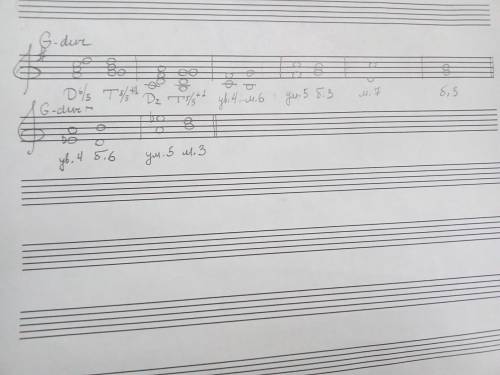 G-dur
D6/5 T5/3+1 D2 T5/3+1 ув.4 м.6 ум.5 б.3 м.7 б.3
G-dur
ув.4 б.6 ум.5 м.3